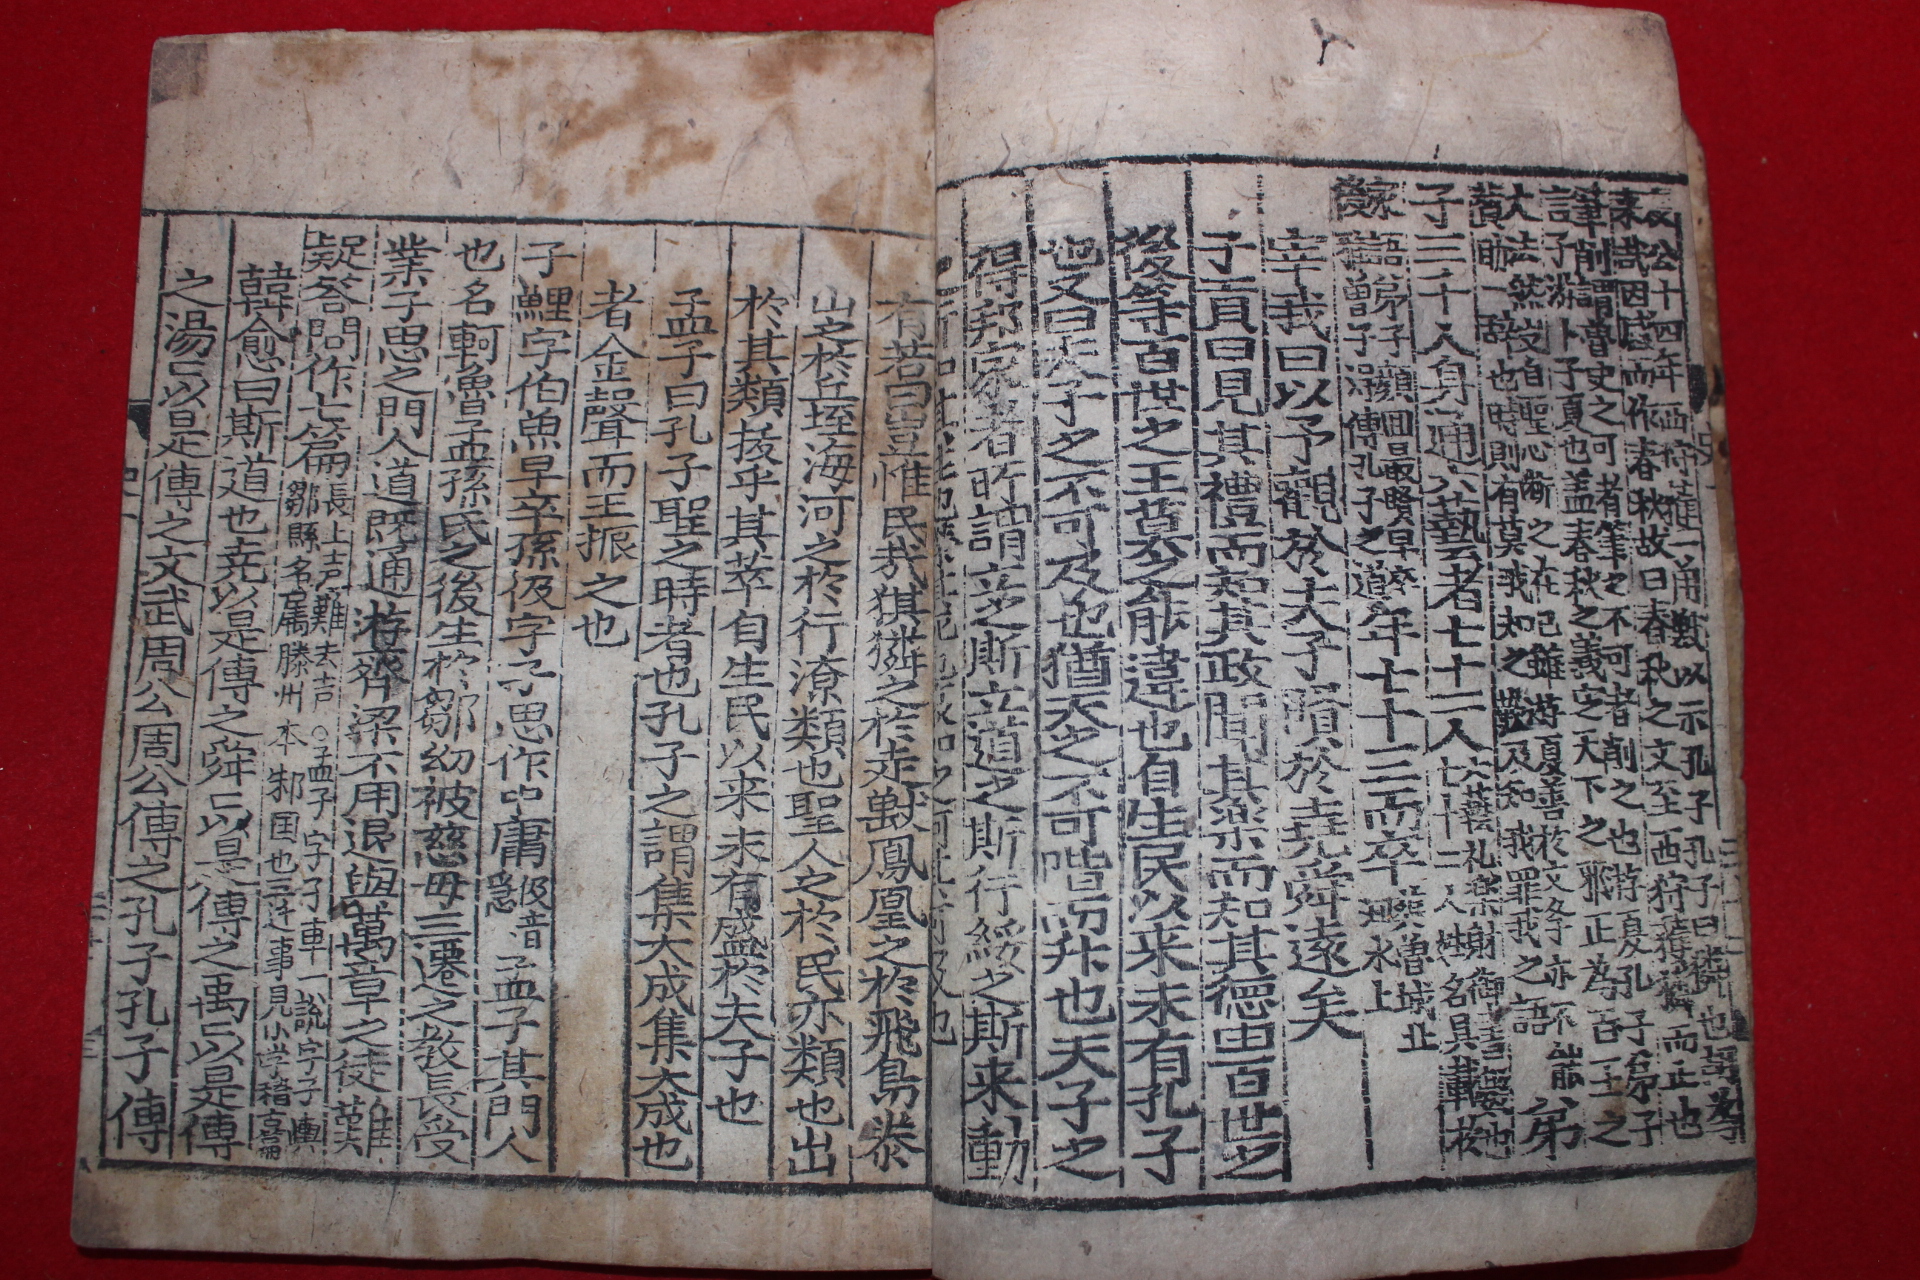 哀公十四年西狩獲
以示孔子孔子曰麟也
来哉因而作春秋故曰春秋之文至西狩獲麟而止也
筆削謂魯史之可者筆之不可者削之也游夏孔子弟子
言子游卜子夏也盖春秋之義定天下之邪正為百王之
大法然自聖心断之在已雖游夏善於文学亦不能
賛助一辭也時則有莫我知之歎及知我罪我之語弟
子三千人身通六藝者七十二人七十二人姓名具載於
家語弟子顔回最賢早卒
曾子得傳孔子之道年七十三而卒
宰我曰以予觀於夫子賢於尭舜遠矣
子貢曰見其禮而知其政聞其楽而知其徳由百世之
後等百世之王莫之能違也自生民以来未有孔子
也又曰夫子之不可及也猶天之不可階而升也夫子之
得邦家者所謂立之斯立道之斯行綏之斯来動
有若曰豈惟民㢤猉獜之於走獣鳳凰之於飛鳥泰
山之於丘垤海河之於行潦類也聖人之於民亦類也出
於其類拔乎其萃自生民以来未有盛於夫子也
孟子曰孔子聖之時者也孔子之謂集大成集大成也
者金聲而玉振之也
子鯉字伯魚早卒孫伋字子思作中庸伋音急孟子其門人
也名軻魯孟孫氏之後生於鄒幼被慈母三遷之教長受
業子思之門人道既通游齊梁不用退與萬章之徒難
疑答問作七篇長上声難去声○孟子字子車一說字子輿
鄒縣名属滕州本邾国也三迁事見小学稽古篇
韓愈曰斯道也尭以是傳之舜舜以是傳之禹禹以是傳
之湯湯以是傳之文武周公周公傳之孔子孔子傳